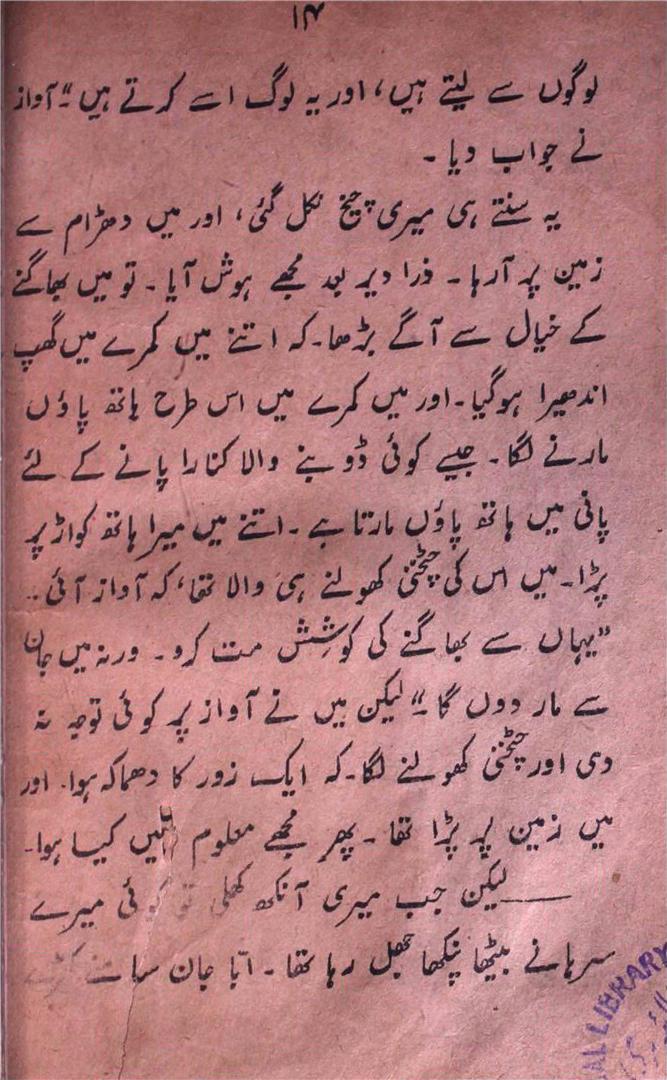 ۱۴
لوگوں سے لیتے ہیں، اور یہ لوگ اسے کرتے ہیں"۔ آواز
نے جواب دیا ۔
یہ سنتے ہی میری چیخ نکل گئی، اور میں دھڑام سے
زمین پر آرہا ۔ ذرا دیر بعد مجھے ہوش آیا ۔ تو میں بھاگنے
کے خیال سے آگے بڑھا۔ کہ اتنے میں کمرے میں گھپ
اندھیرا ہوگیا۔ اور میں کمرے میں اس طرح ہاتھ پاؤں
مارنے لگا ۔ جیسے کوئی ڈوبنے والا کنارا پانے کے لئے
پانی میں ہاتھ پاؤں مارتا ہے ۔ اتنے میں میرا ہاتھ کواڑ پر
پڑا۔ میں اس کی چٹخنی کھولنے ہی والا تھا، کہ آواز آئی ..
"یہاں سے بھاگنے کی کوشش مت کرو ۔ ورنہ میں جان
سے مار دوں گا ۔" لیکن میں نے آواز پر کوئی توجہ نہ
دی اور چٹخنی کھولنے لگا۔ کہ ایک زور کا دھماکہ ہوا۔ اور
میں زمین پر پڑا تھا ۔ پھر مجھے معلوم نہیں کیا ہوا۔
——لیکن جب میری آنکھ کھلی تو کوئی میرے
سرہانے بیٹھا پنکھا جھل رہا تھا ۔ ابا جان سامنے کھڑے
AL LIBRARY